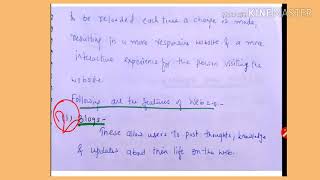 Made with KINEMASTER
to be reloaded each time a change is made,
resulting in a more responsive website & a more
interactive experience for the person visiting the
website.
Following are the features of Web 2.0:-
(1) Blogs-
These allow users to post thoughts, knowledge
& updates about their life on the web.